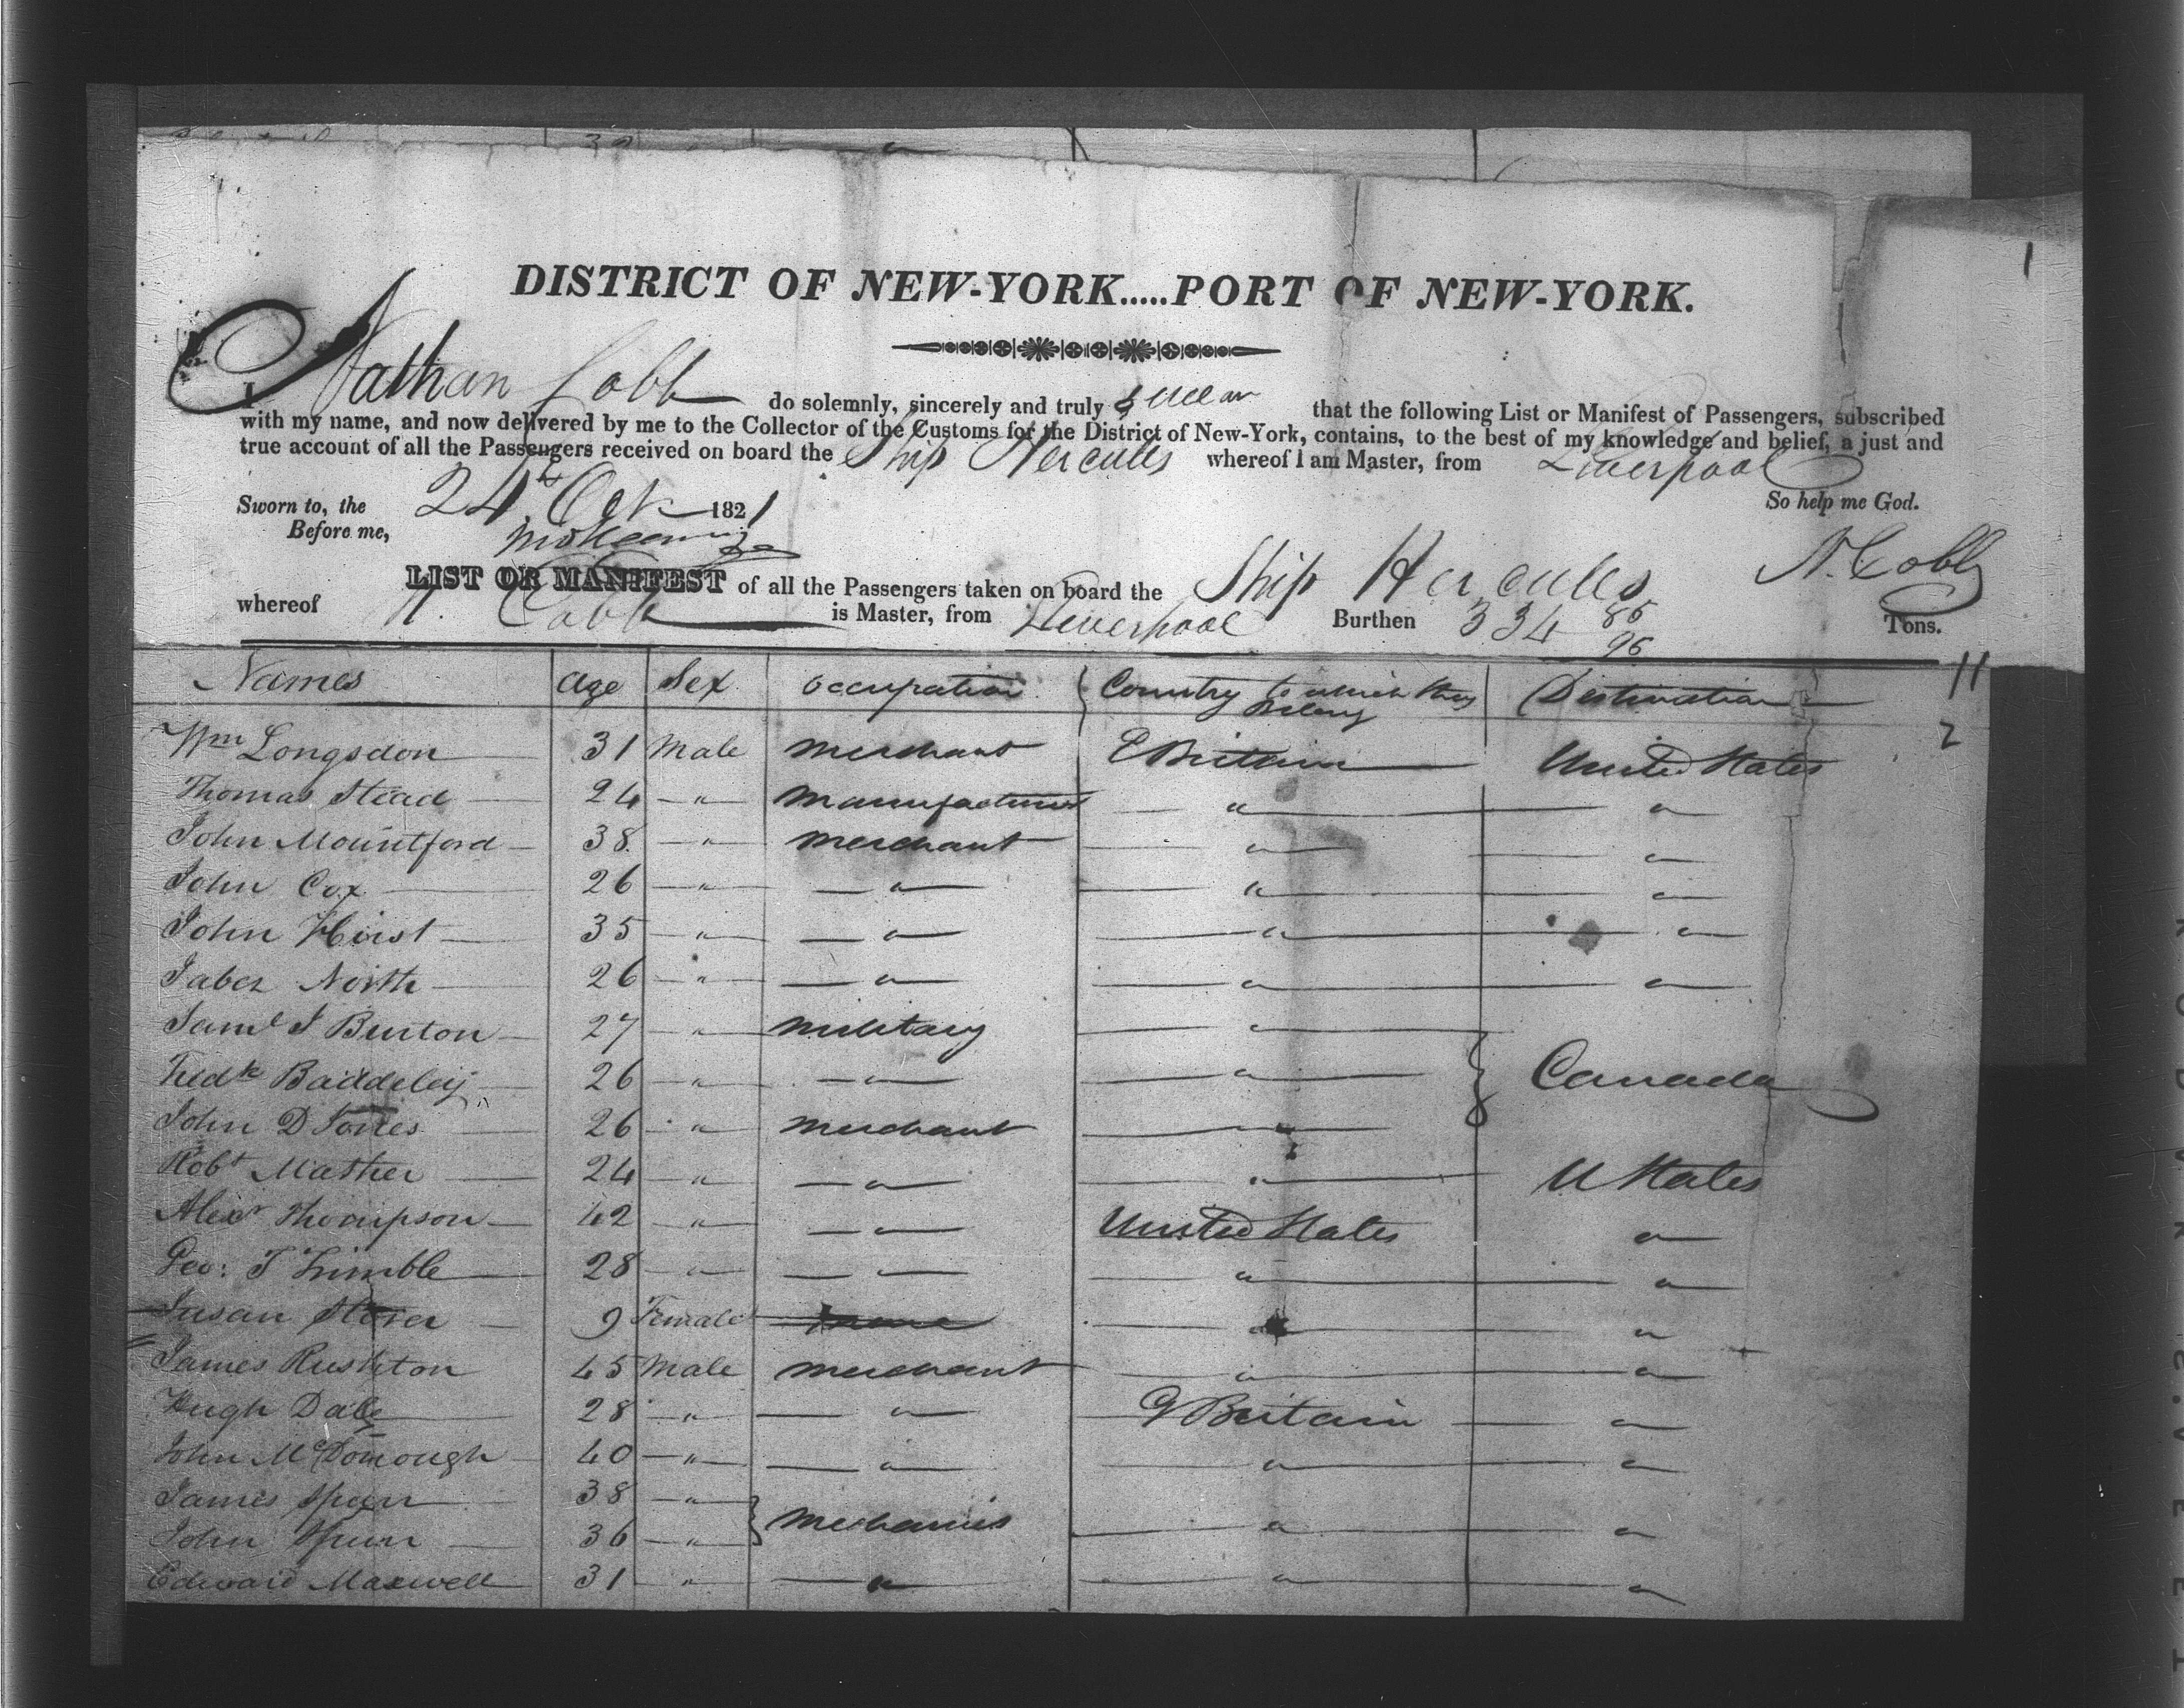 1
DISTRICT OF NEW-YORK.....PORT OF NEW-YORK.
I Nathan Cobb do solemnly, sincerely and truly swear that the following List or Manifest of Passengers, subscribed
with my name, and now delivered by me to the Collector of the Customs for the District of New-York, contains, to the best of my knowledge and belief, a just and
true account of all the Passengers received on board the Ship Hercules whereof I am Master, from Liverpool
Sworn to, the 24th Oct 1821 So help me God.
Before me,
N. Cobb
LIST OR MANIFEST of all the Passengers taken on board the Ship Hercules
whereof N. Cobb is Master, from Liverpool Burthen 334 85/95 Tons.
Names Age Sex Occupation Country to which they belong Destination 11
2
Wm Longsdon 31 Male Merchant G Britain United States
Thomas Stead 24 " Manufacturer " "
John Mountford 38 " Merchant " "
John Cox 26 " " " "
John Hirst 35 " " " "
Jabez North 26 " " " "
Saml J Burton 27 " Military "
Fredk Baddeley 26 " " " Canada
John D 26 " Merchant "
Robt Mather 24 " " " U States
Alexr Thompson 42 " " United States "
Geo: T Trimble 28 " " " "
Susan 9 Female none " "
James Rushton 45 Male Merchant " "
Hugh Dale 28 " " G Britain "
John McDonough 40 " " " "
James 38 "
John 36 " Mechanics " "
Edward Maxwell 31 " " " "